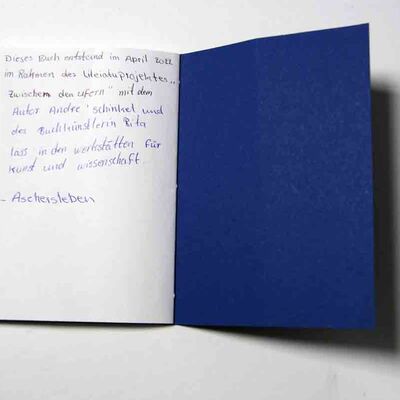 Dieses Buch entstand im April 2022
im Rahmen des Literaturprojektes „
zwischen den ufern" mit dem
Autor Andre' schinkel und
der Buchkünstlerin Rita
lass in den werkstätten für
kunst und wissenschaft
- Aschersleben